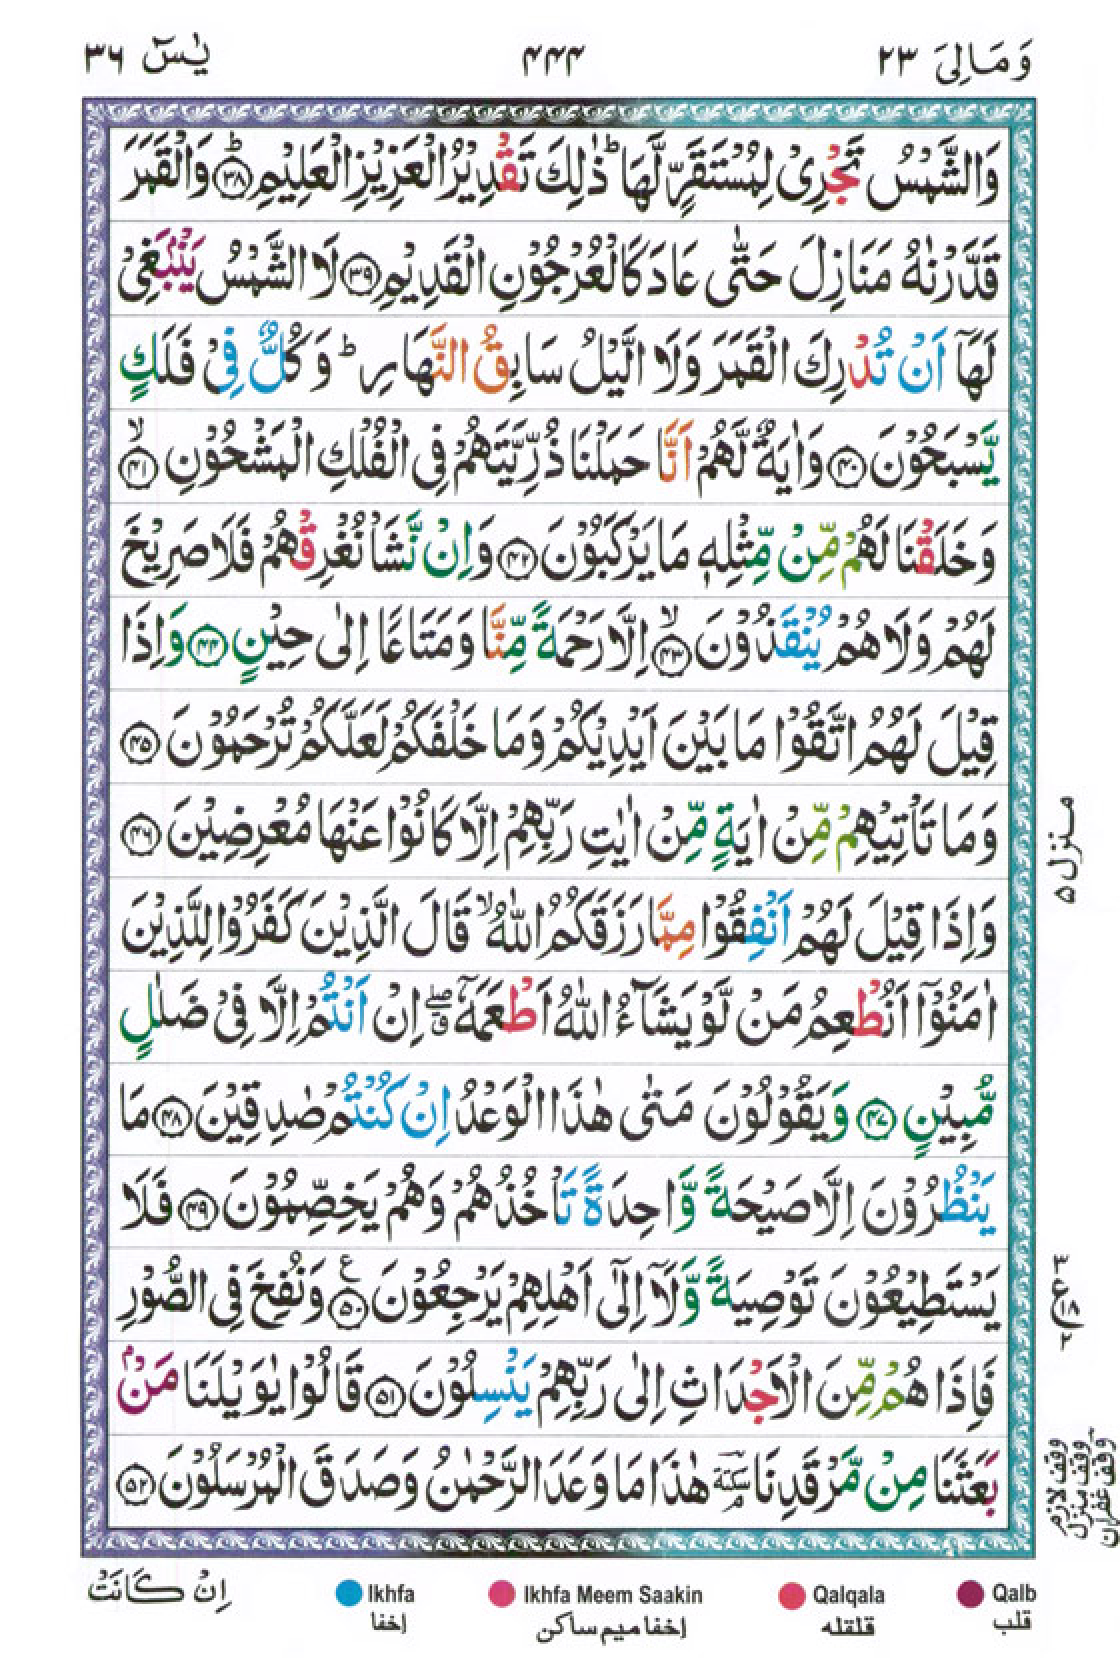 وَمَالِیَ ٢٣ ۴۴۴ یٰسٓ ٣٦
وَالشَّمْسُ تَجْرِیْ لِمُسْتَقَرٍّ لَّهَا ؕ ذٰلِكَ تَقْدِیْرُ الْعَزِیْزِ الْعَلِیْمِ ؕ﴿۳۸﴾ وَالْقَمَرَ
قَدَّرْنٰهُ مَنَازِلَ حَتّٰی عَادَ كَالْعُرْجُوْنِ الْقَدِیْمِ ﴿۳۹﴾ لَا الشَّمْسُ یَنْۢبَغِیْ
لَهَاۤ اَنْ تُدْرِكَ الْقَمَرَ وَلَا الَّیْلُ سَابِقُ النَّهَارِ ؕ وَكُلٌّ فِیْ فَلَكٍ
یَّسْبَحُوْنَ ﴿۴۰﴾ وَاٰیَةٌ لَّهُمْ اَنَّا حَمَلْنَا ذُرِّیَّتَهُمْ فِی الْفُلْكِ الْمَشْحُوْنِ ۙ﴿۴۱﴾
وَخَلَقْنَا لَهُمْ مِّنْ مِّثْلِهٖ مَا یَرْكَبُوْنَ ﴿۴۲﴾ وَاِنْ نَّشَاْ نُغْرِقْهُمْ فَلَا صَرِیْخَ
لَهُمْ وَلَا هُمْ یُنْقَذُوْنَ ۙ﴿۴۳﴾ اِلَّا رَحْمَةً مِّنَّا وَمَتَاعًا اِلٰی حِیْنٍ ﴿۴۴﴾ وَاِذَا
قِیْلَ لَهُمُ اتَّقُوْا مَا بَیْنَ اَیْدِیْكُمْ وَمَا خَلْفَكُمْ لَعَلَّكُمْ تُرْحَمُوْنَ ﴿۴۵﴾
وَمَا تَاْتِیْهِمْ مِّنْ اٰیَةٍ مِّنْ اٰیٰتِ رَبِّهِمْ اِلَّا كَانُوْا عَنْهَا مُعْرِضِیْنَ ﴿۴۶﴾
وَاِذَا قِیْلَ لَهُمْ اَنْفِقُوْا مِمَّا رَزَقَكُمُ اللّٰهُ ۙ قَالَ الَّذِیْنَ كَفَرُوْا لِلَّذِیْنَ
اٰمَنُوْۤا اَنُطْعِمُ مَنْ لَّوْ یَشَآءُ اللّٰهُ اَطْعَمَهٗۤ ۖۗ اِنْ اَنْتُمْ اِلَّا فِیْ ضَلٰلٍ
مُّبِیْنٍ ﴿۴۷﴾ وَیَقُوْلُوْنَ مَتٰی هٰذَا الْوَعْدُ اِنْ كُنْتُمْ صٰدِقِیْنَ ﴿۴۸﴾ مَا
یَنْظُرُوْنَ اِلَّا صَیْحَةً وَّاحِدَةً تَاْخُذُهُمْ وَهُمْ یَخِصِّمُوْنَ ﴿۴۹﴾ فَلَا
یَسْتَطِیْعُوْنَ تَوْصِیَةً وَّلَاۤ اِلٰۤی اَهْلِهِمْ یَرْجِعُوْنَ ﴿۵۰﴾ ع وَنُفِخَ فِی الصُّوْرِ
فَاِذَا هُمْ مِّنَ الْاَجْدَاثِ اِلٰی رَبِّهِمْ یَنْسِلُوْنَ ﴿۵۱﴾ قَالُوْا یٰوَیْلَنَا مَنْۢ
بَعَثَنَا مِنْ مَّرْقَدِنَا ۘؐ سكتة هٰذَا مَا وَعَدَ الرَّحْمٰنُ وَصَدَقَ الْمُرْسَلُوْنَ ﴿۵۲﴾
منزل ۵
٣ ع ١٨ ٢
وقف لازم
وقف منزل
وقف غفران
اِنْ كَانَتْ
Ikhfa Ikhfa Meem Saakin Qalqala Qalb
إخفا إخفا میم ساكن قلقله قلب